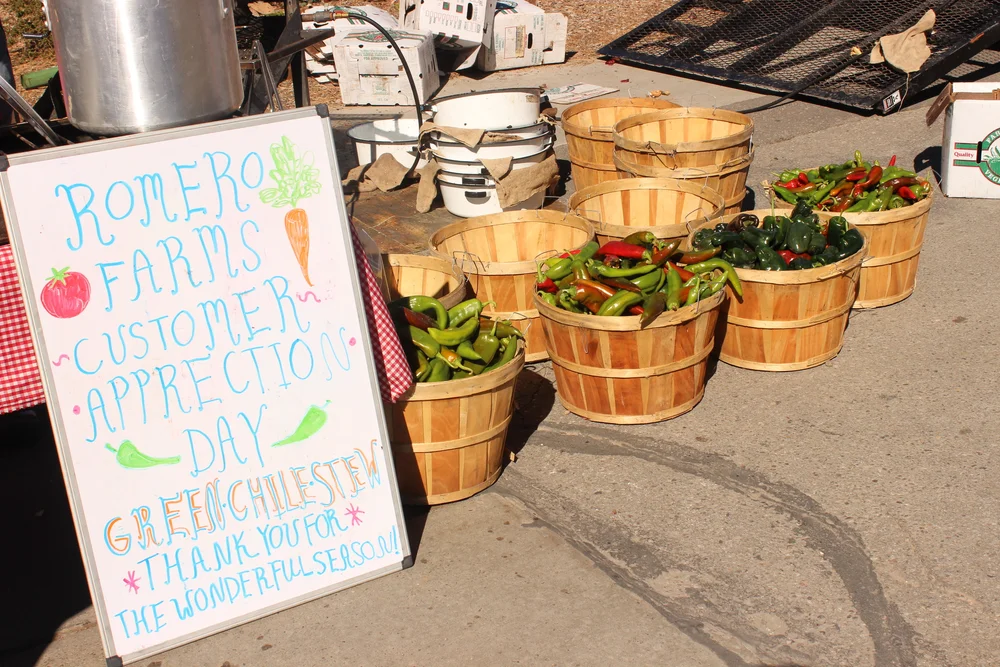 ROMERO
FARMS
CUSTOMER
APPRECTION
DAY
GREEN·CHILE·STEW
THANK YOU FOR
THE WONDERFUL SEASON!
Quality